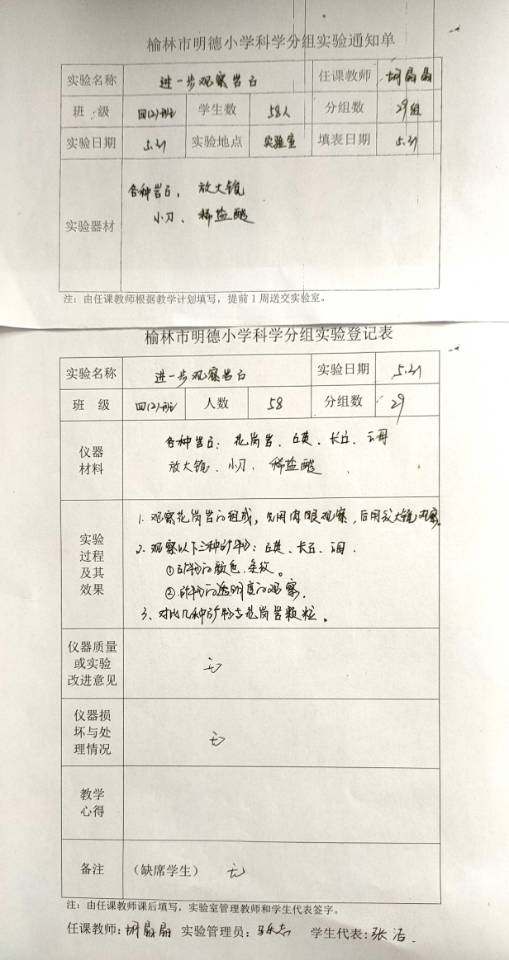 榆林市明德小学科学分组实验通知单
实验名称 进一步观察岩石 任课教师 胡晶晶
班 级 四(2)班 学生数 58人 分组数 29组
实验日期 5.31 实验地点 实验室 填表日期 5.31
实验器材
各种岩石, 放大镜
小刀、稀盐酸
注:由任课教师根据教学计划填写,提前1周送交实验室。
榆林市明德小学科学分组实验登记表
实验名称 进一步观察岩石 实验日期 5.31
班 级 四(2)班 人数 58 分组数 29
仪器
材料
各种岩石:花岗岩、石英、长石、云母
放大镜、小刀、稀盐酸
实验
过程
及其
效果
1. 观察花岗岩的组成,先用肉眼观察,后用放大镜观察。
2. 观察以下三种矿物:石英、长石、云母.
①矿物的颜色、条纹。
②矿物的透明度的观察.
3、对比几种矿物与花岗岩颗粒。
仪器质量
或实验
改进意见
无
仪器损
坏与处
理情况
无
教学
心得
备注 (缺席学生) 无
注:由任课教师课后填写,实验室管理教师和学生代表签字。
任课教师:胡晶晶 实验管理员: 学生代表:张洁.